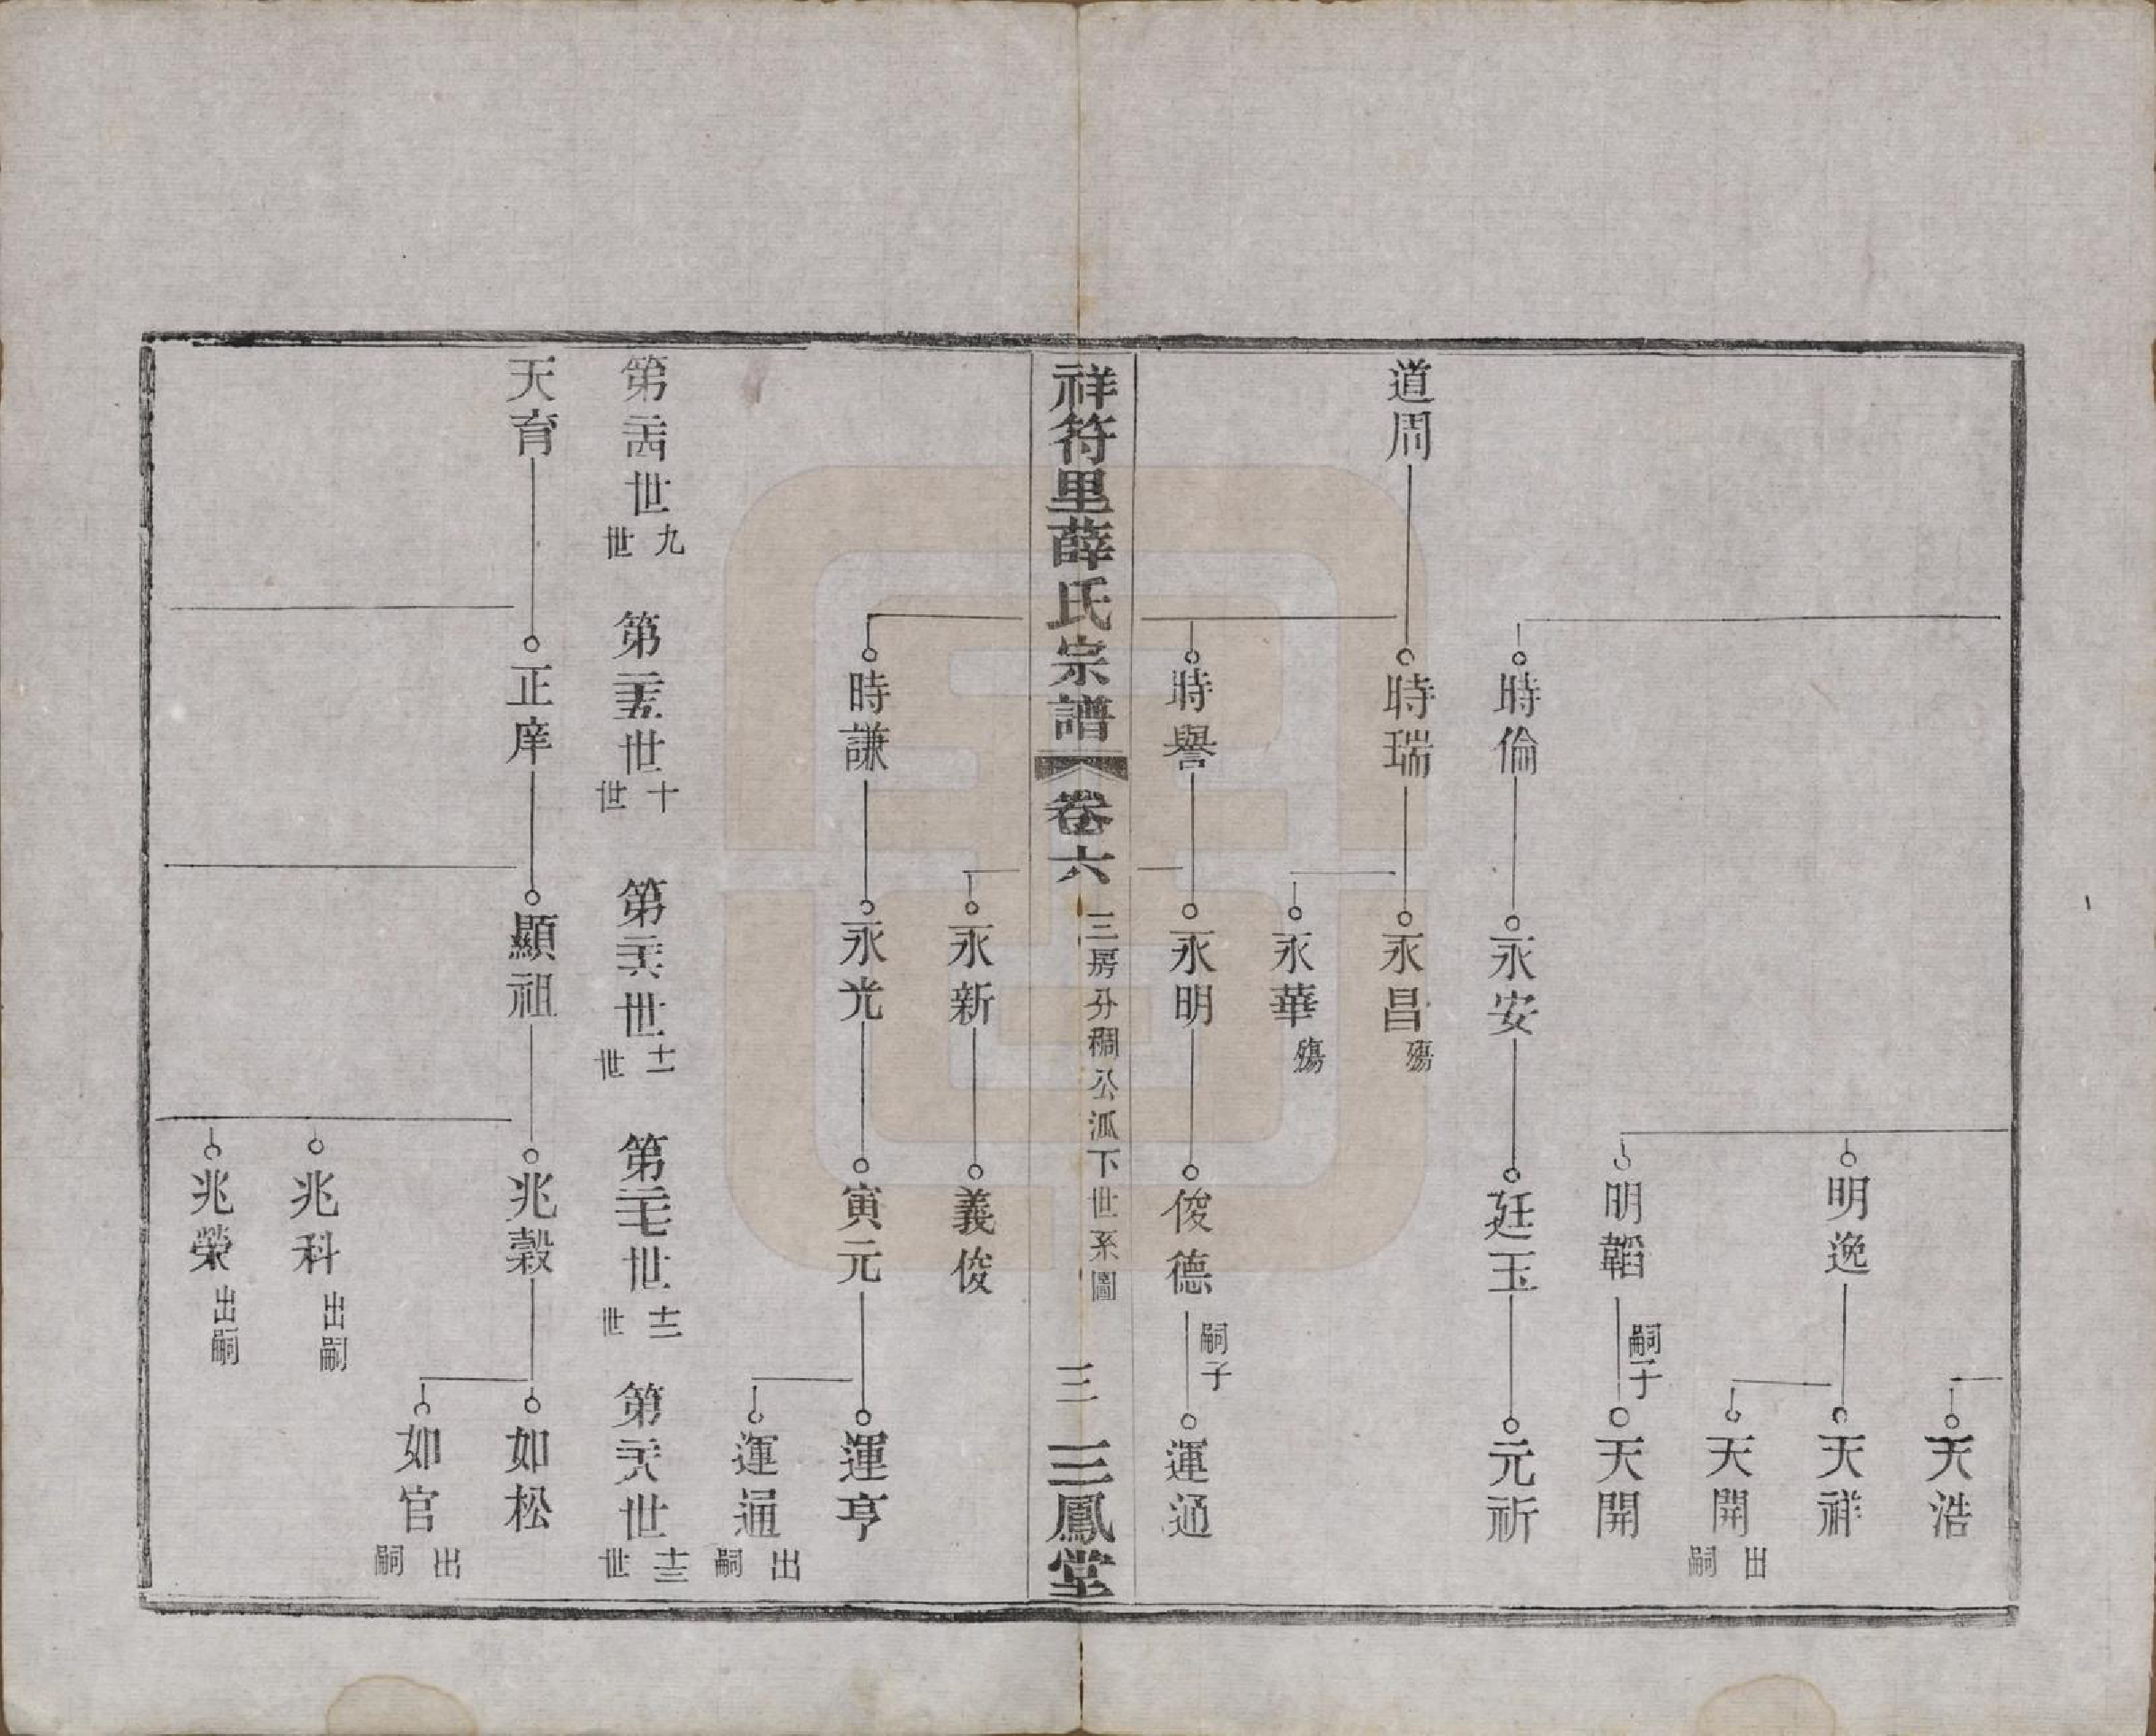 天浩
明逸
天祥
天開 出嗣
明韜 嗣子
天開
時倫
永安
廷玉
元祈
道周
時瑞
永昌 殤
永華 殤
時譽
永明
俊德 嗣子
運通
祥符里薛氏宗譜 卷六 三房分稠公派下世系圖 三 三鳳堂
永新
義俊
時謙
永光
寅元
運亨
運通 出嗣
第二十四世 九世
第二十五世 十世
第二十六世 十一世
第二十七世 十二世
第二十八世 十三世
天育
正庠
顯祖
兆穀
如松
如官 出嗣
兆科 出嗣
兆榮 出嗣